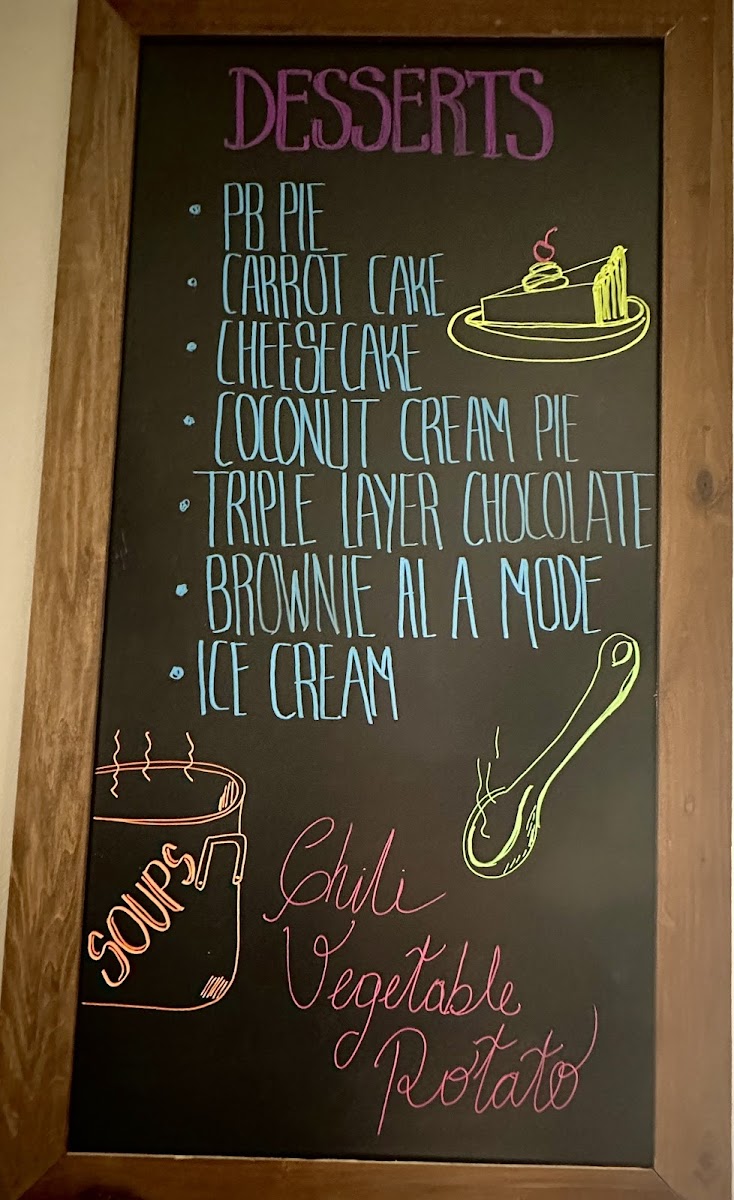 DESSERTS
• PB PIE
• CARROT CAKE
• CHEESECAKE
• COCONUT CREAM PIE
• TRIPLE LAYER CHOCOLATE
• BROWNIE AL A MODE
• ICE CREAM
SOUPS
Chili
Vegetable
Potato